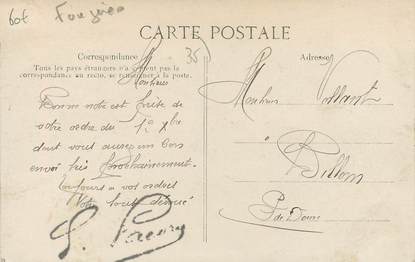 60f
Fougères
35
CARTE POSTALE
Correspondance
Tous les pays étrangers n'acceptent pas la
correspondance au recto, se renseigner à la poste.
Monsieur
Bonne note est prise de
votre ordre du 12 Xbre
dont vous aurez un bon
envoi très prochainement.
Toujours à vos ordres
Votre tout dévoué
Adresse
Monsieur
Billom
P. de Dome